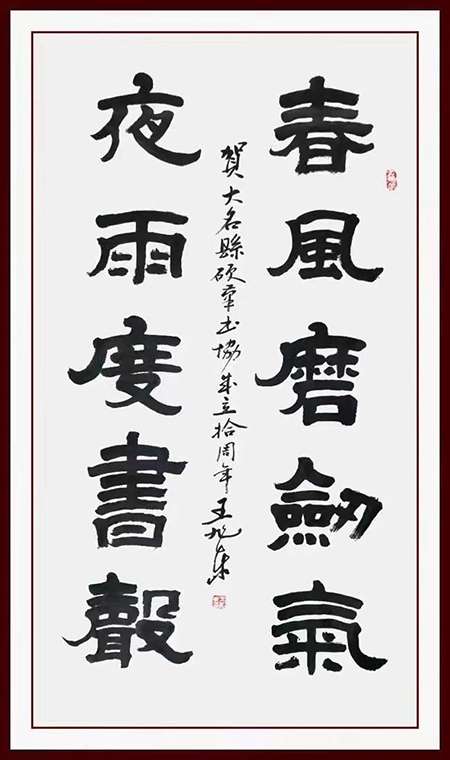 春風磨劒氣
夜雨度書聲
賀大名縣硬筆書協成立拾周年王旭东